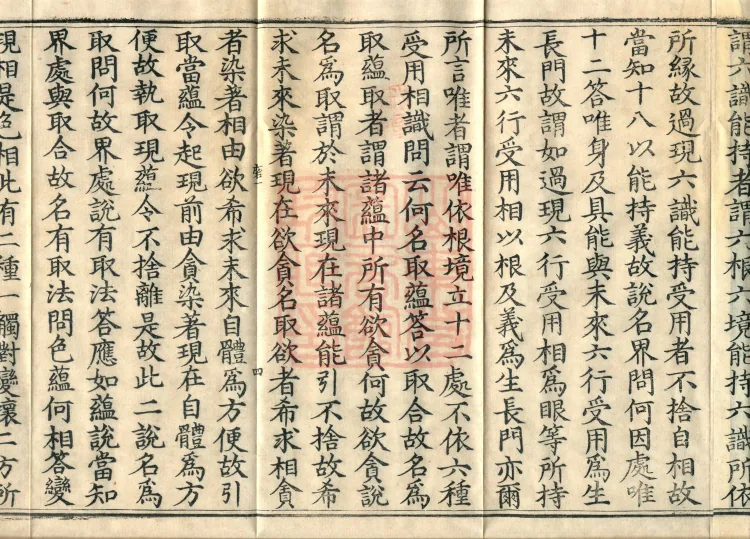 謂六識能持者謂六根六境能持六識所依
所緣故過現六識能持受用者不捨自相故
當知十八以能持義故說名界問何因處唯
十二答唯身及具能與未來六行受用為生
長門故謂如過現六行受用相為眼等所持
未來六行受用相以根及義為生長門亦爾
所言唯者謂唯依根境立十二處不依六種
受用相識問云何名取蘊答以取合故名為
取蘊取者謂諸蘊中所有欲貪何故欲貪說
名為取謂於未來現在諸蘊能引不捨故希
求未來染著現在欲貪名取欲者希求相貪
者染著相由欲希求未來自體為方便故引
取當蘊令起現前由貪染著現在自體為方
便故執取現蘊令不捨離是故此二說名為
取問何故界處說有取法答應如蘊說當知
界處與取合故名有取法問色蘊何相答變
現相是色相此有二種一觸對變壞二方所
四